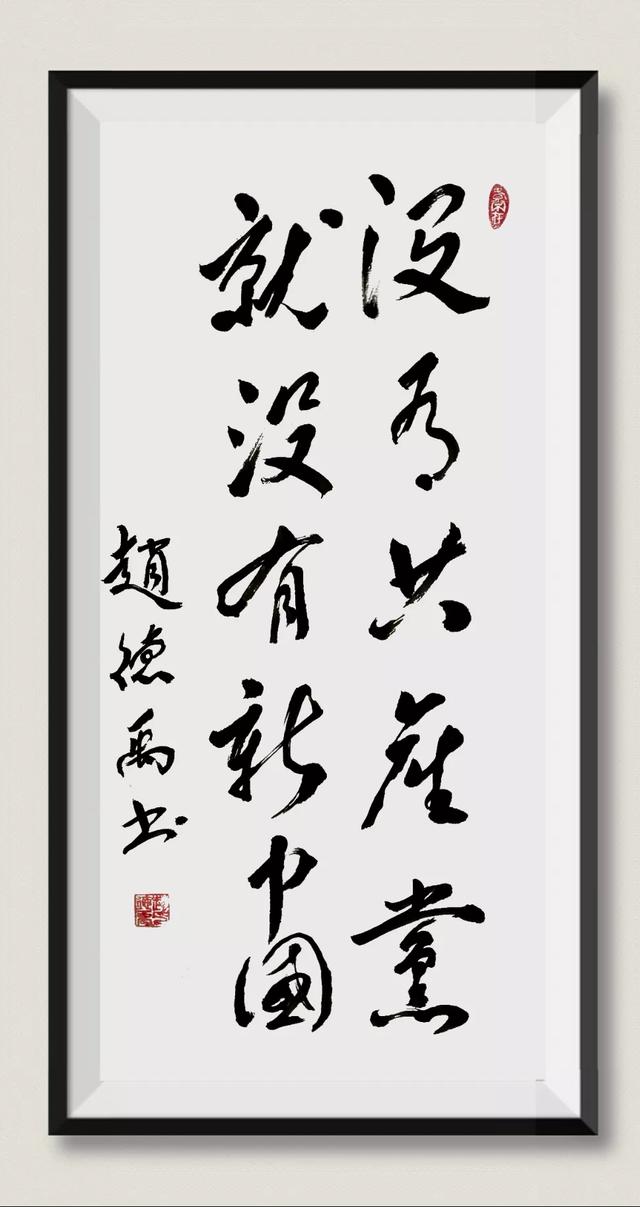 没有共產黨
就没有新中國
趙德禹书